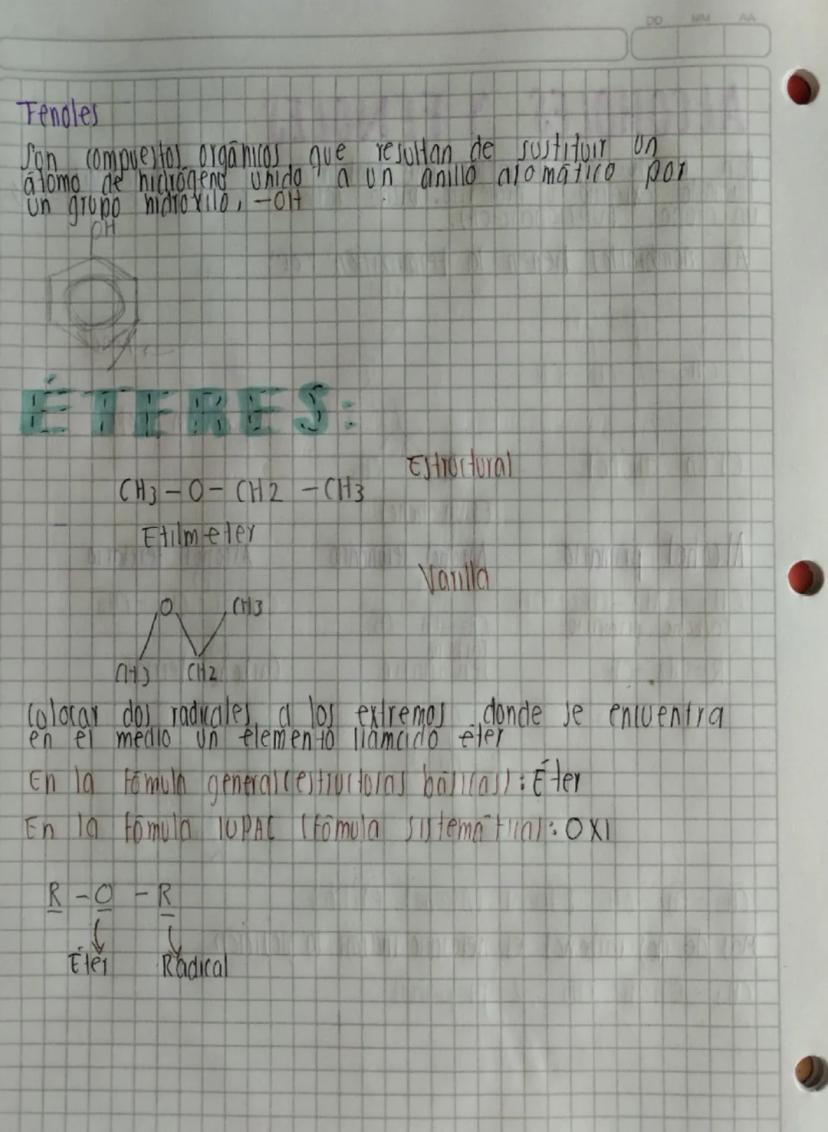 DD MM AA
Fenoles
Son compuestos orgánicos, que resultan de sustituir un
átomo de hidrógeno unido a un anillo aromático por
un grupo hidroxilo, -OH
OH
ÉTERES:
Estructural
CH3-O-CH2-CH3
Etilmeter
Varilla
O CH3
CH3 CH2
Colocar dos radicales, a los extremos, donde se encuentra
en el medio un elemento llamado eter
En la fómula general (estructuras básicas): Éter
En la fómula IUPAC (fómula sistemática): OXI
R-O-R
Éter Radical